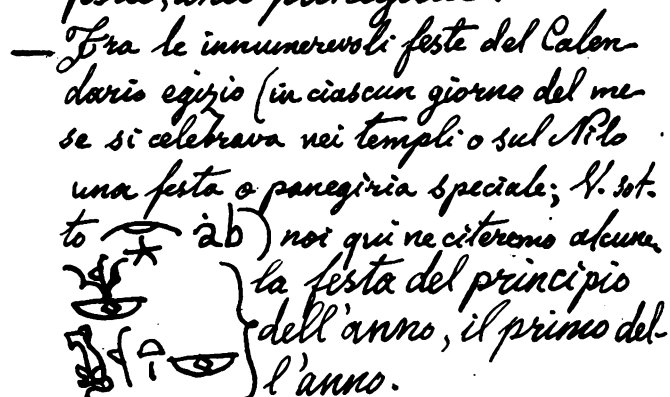 — Fra le innumerevoli feste del Calen-
dario egizio (in ciascun giorno del me-
se si celebrava nei templi o sul Nilo
una festa o panegiria speciale; V. sot-
to ȧb) noi qui ne citeremo alcune.
la festa del principio
dell'anno, il primo del-
l'anno.